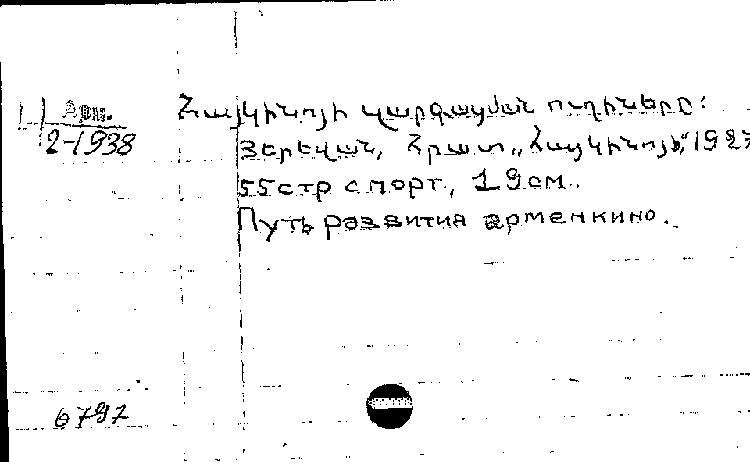 Арм.
2-1938
Հայկինոյի զարգացման ուղիները:
Յերեվան, Հրատ „Հայկինոյի”, 192
55 стр с порт., 19 см.
Путь развития арменкино.
6797